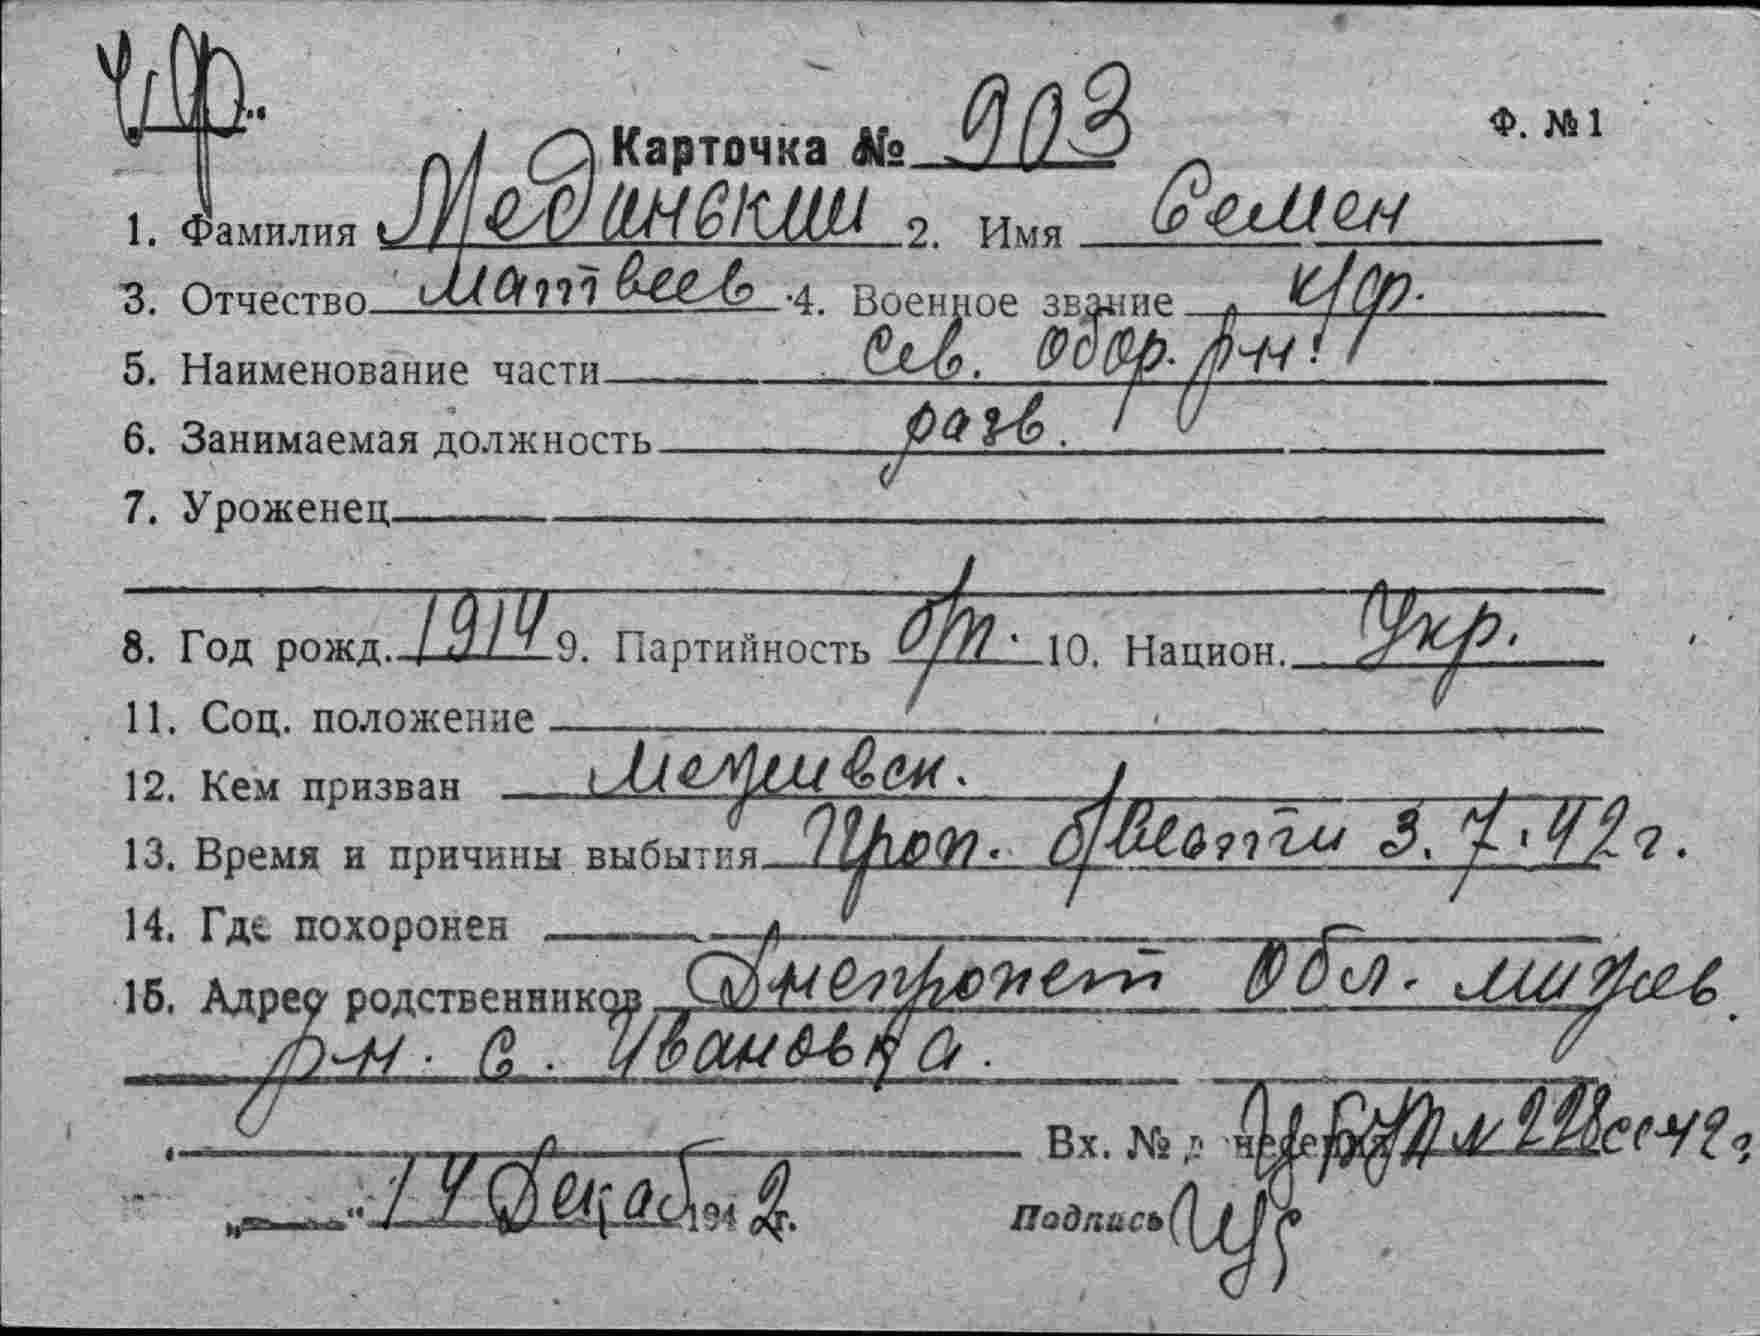 Ч/Ф..
Карточка № 903
Ф. №1
1. Фамилия Мединский 2. Имя Семен
3. Отчество Матвеев 4. Военное звание к/фр.
5. Наименование части Сев. обор. р-н.
6. Занимаемая должность разв.
7. Уроженец
8. Год рожд. 1914 9. Партийность б/п. 10. Национ. Укр.
11. Соц. положение
12. Кем призван Меживск.
13. Время и причины выбытия Проп. б/вести 3.7.42 г.
14. Где похоронен
15. Адрес родственников Днепропет обл. Мижев.
р-н. с. Ивановка.
Вх. № № 228сс 42г
„ “ 14 Декаб 1942г.
Подпись